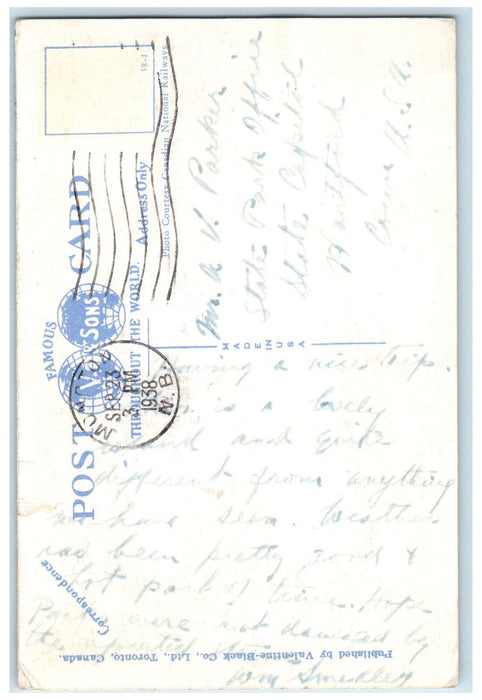 38-1
Photo Courtesy Canadian National Railways
Address Only
POST CARD
FAMOUS
V. & SONS
THROUGHOUT THE WORLD.
MADE IN USA
SEP 23
PM
1938
N.B.
Correspondence
Published by Valentine-Black Co., Ltd., Toronto, Canada.
Mr. A V. Parker
State Park Office
State Capitol
Hartford
Conn U.S.A.
Having a nice trip.
is a lovely
island and quite
different from anything
we have seen. Weather
has been pretty good &
hot part of time. Hope
Parks were not damaged by
the
Wm Smedley